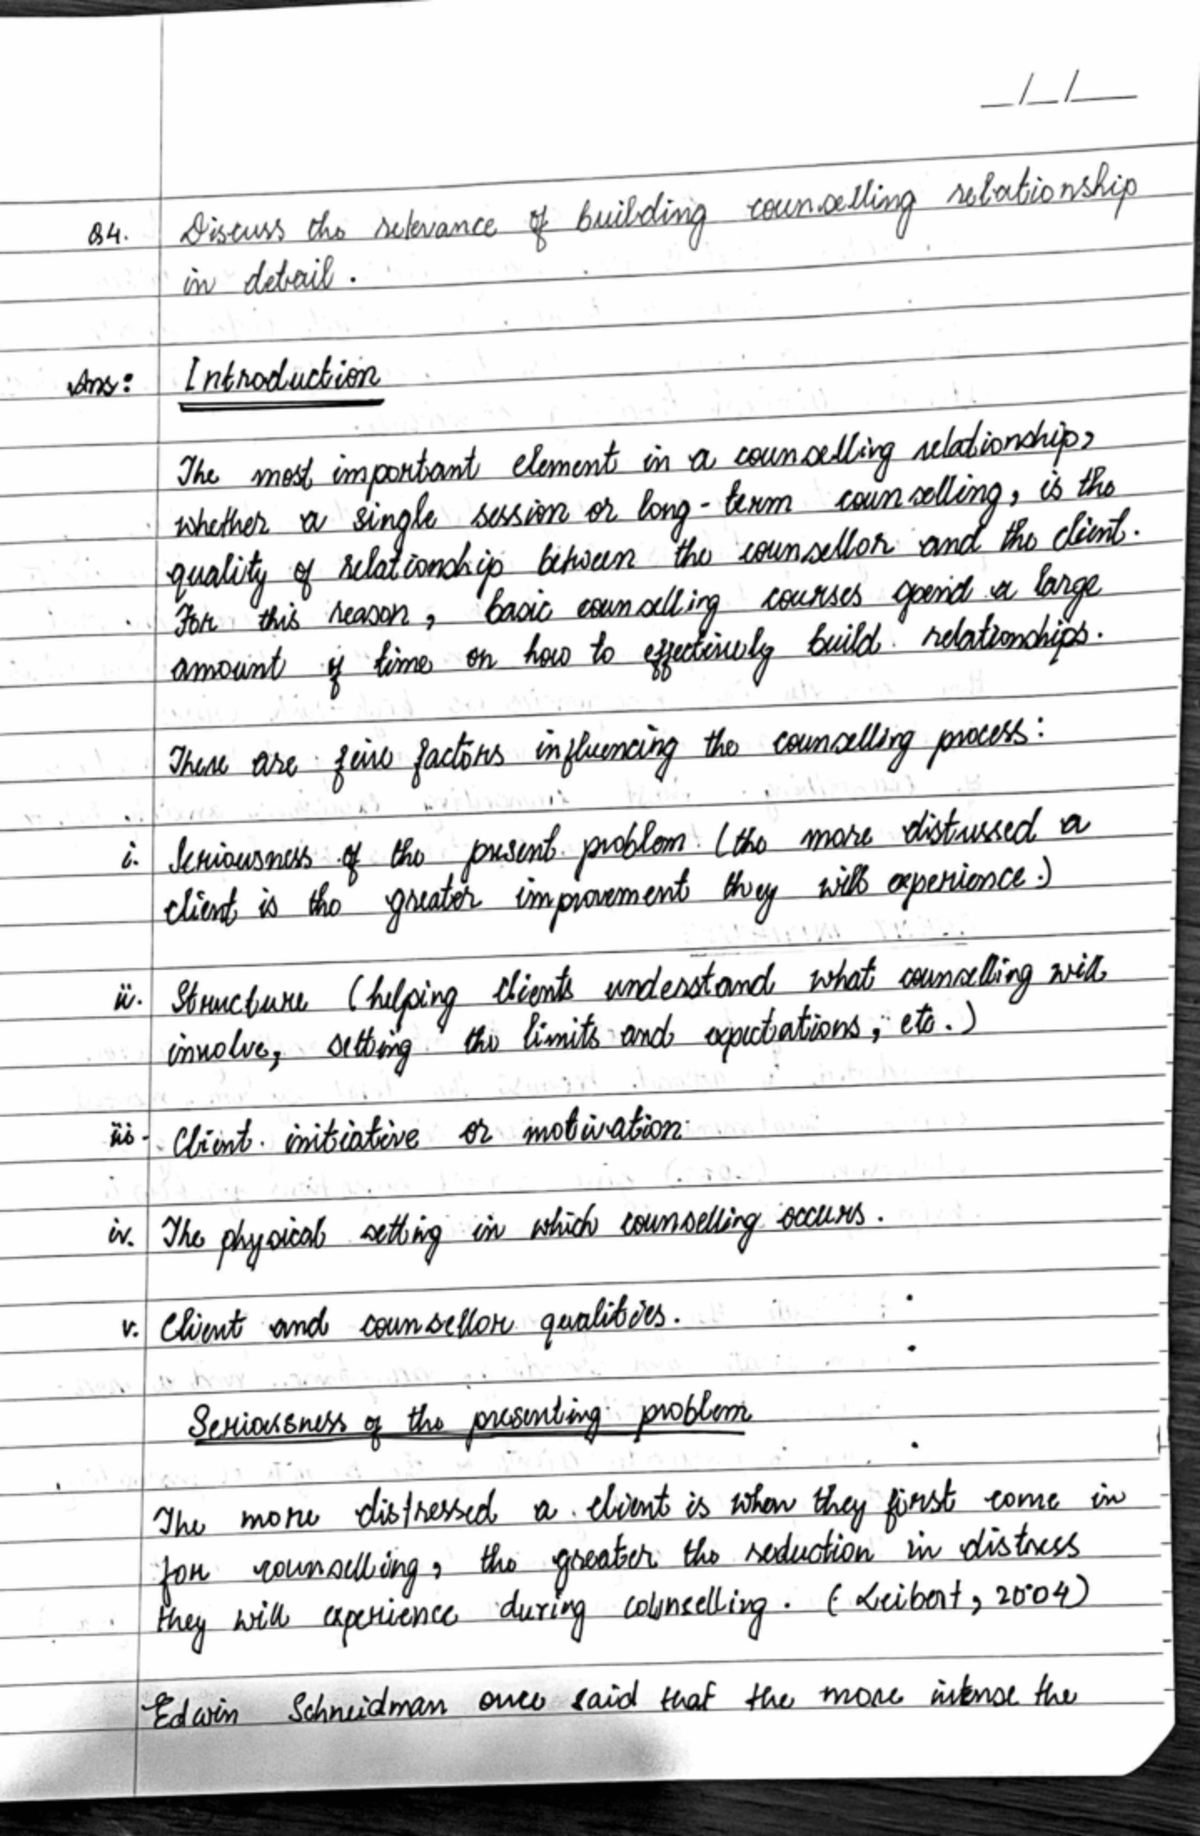 _/_/__
Q4. Discuss the relevance of building counselling relationship
in detail.
Ans: Introduction
The most important element in a counselling relationship,
whether a single session or long-term counselling, is the
quality of relationship between the counsellor and the client.
For this reason, basic counselling courses spend a large
amount of time on how to effectively build relationships.
There are five factors influencing the counselling process:
i. Seriousness of the present problem (the more distressed a
client is the greater improvement they will experience.)
ii. Structure (helping clients understand what counselling will
involve, setting the limits and expectations, etc.)
iii. Client initiative or motivation
iv. The physical setting in which counselling occurs.
v. Client and counsellor qualities.
Seriousness of the presenting problem
The more distressed a client is when they first come in
for counselling, the greater the reduction in distress
they will experience during counselling. (Leibert, 2004)
Edwin Schneidman once said that the more intense the